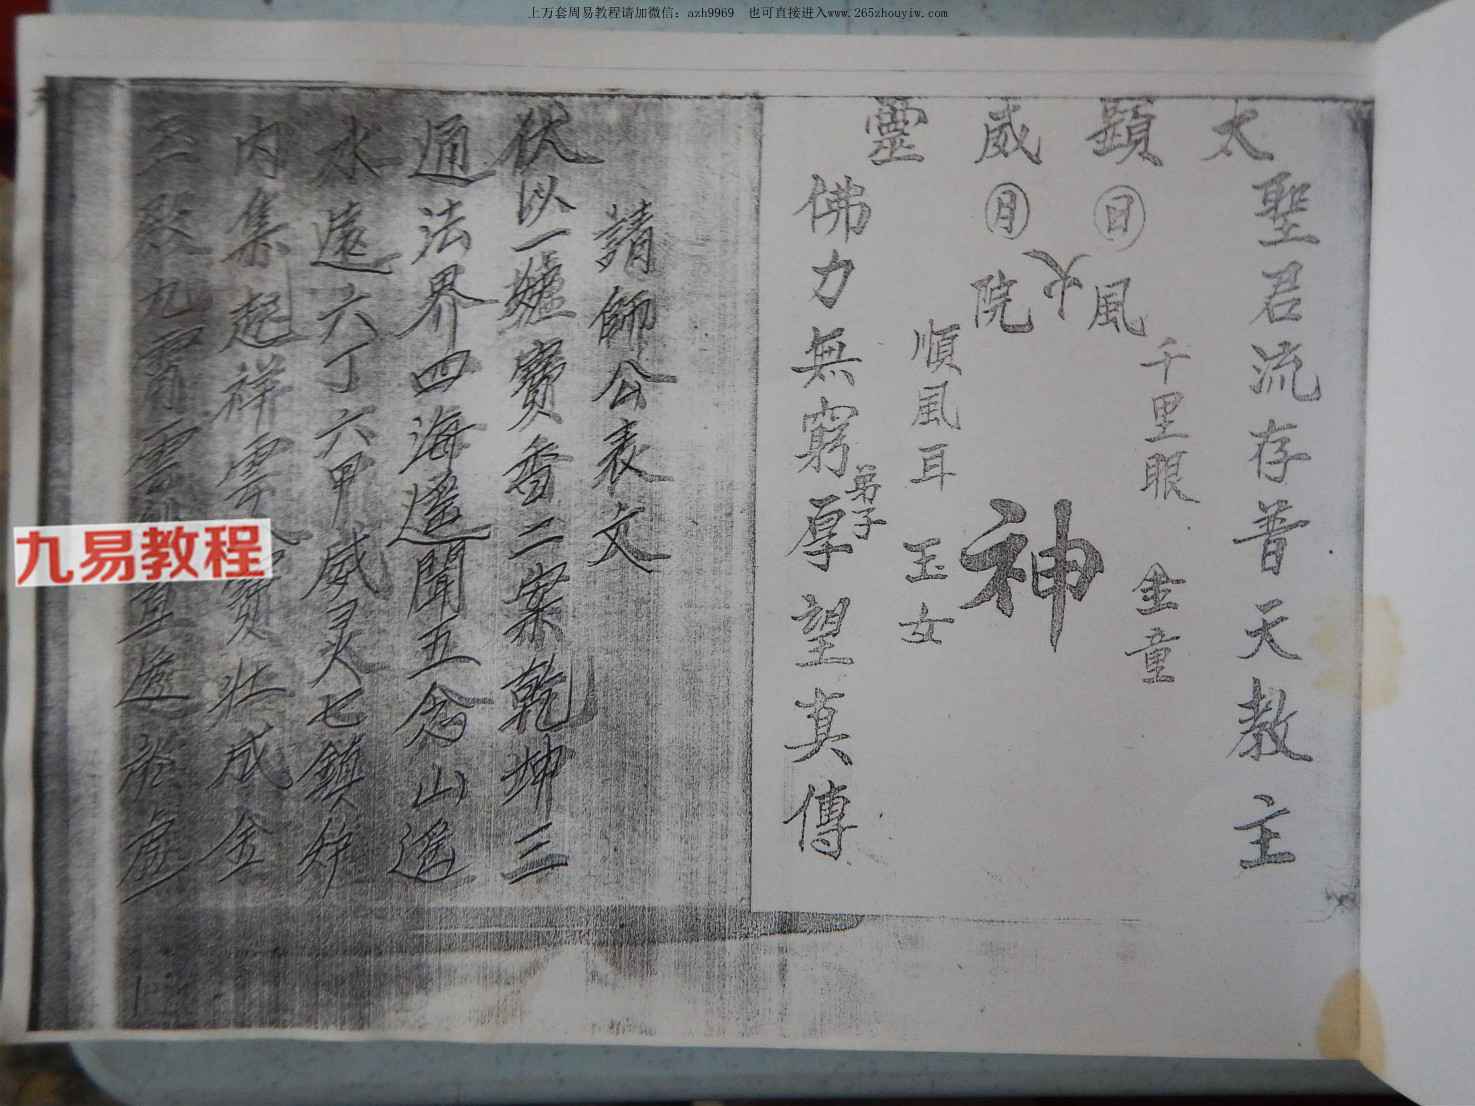 上万套周易教程请加微信：azh9969　也可直接进入www.265zhouyiw.com
太顕威靈
聖君流存普天教主
千里眼　金童
日風
神
月院
順風耳　玉女
弟子
佛力無窮厚望真傳
請師公表文
伏以一爐寶香二案乾坤三
通法界四海遥聞五念山遥
水遠六丁六甲威灵七鎮
内集起祥雲寶壯成金
三殿九霄雲
九易教程